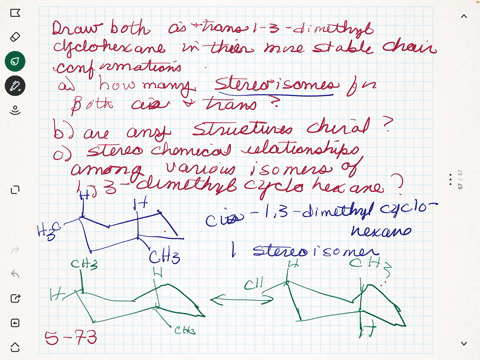 Draw both cis + trans 1-3-dimethyl
cyclohexane in their more stable chair
conformations.
a) how many stereoisomes for
both cis + trans ?
b) are any structures chiral ?
c) stereo chemical relationships
among various isomers of
1,3-dimethyl cyclo hexane ?
H
H
H3C
CH3
cis -1,3-dimethyl cyclo-
hexane
1 stereoisomer
CH3
H
H
CH3
H
CH3
CH
H
5-73